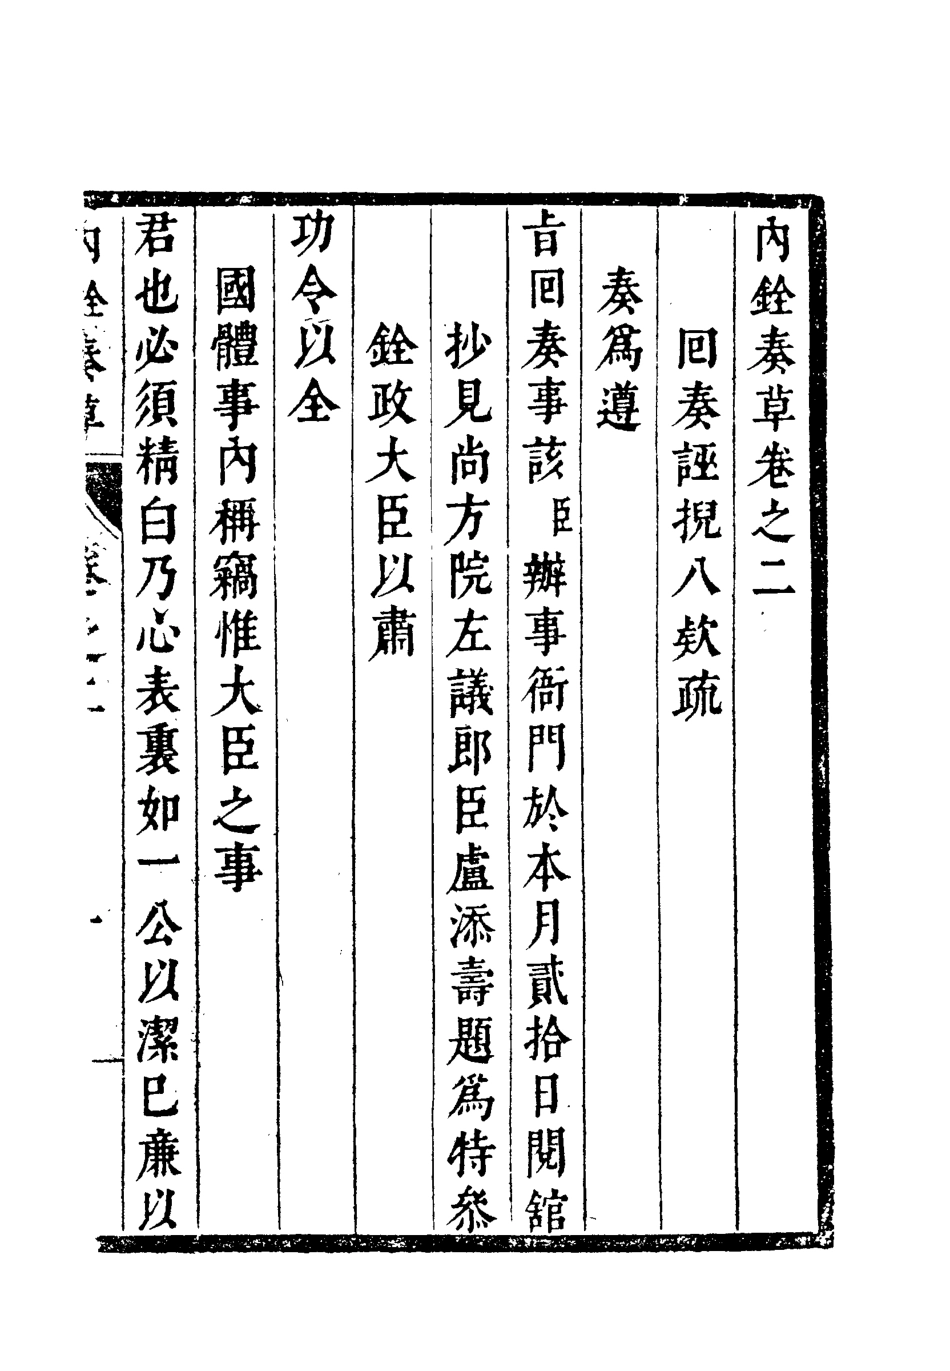 內銓奏草卷之二
回奏誣捏八欵疏
奏爲遵
旨回奏事該臣辦事衙門於本月貳拾日閱舘
抄見尚方院左議郎臣盧添壽題爲特叅
銓政大臣以肅
功令以全
國體事內稱竊惟大臣之事
君也必須精白乃心表裏如一公以潔巳廉以
內銓奏草 卷之二 一